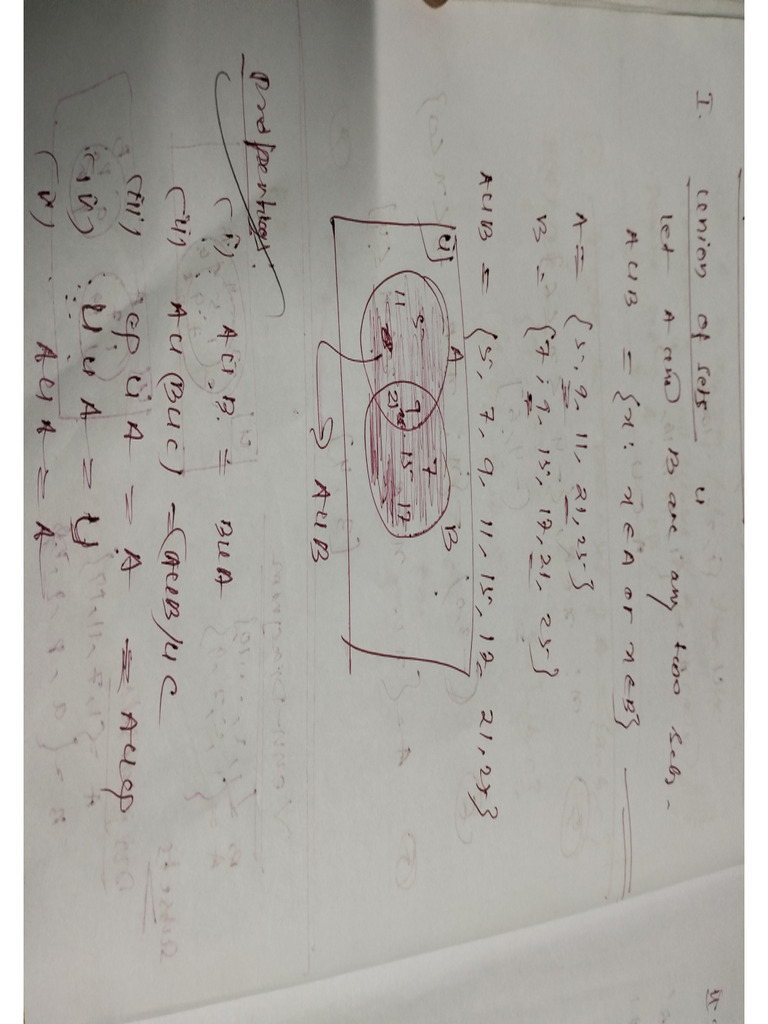 I. Union of sets U
let A and B are any two sets.
A U B = {x : x ∈ A or x ∈ B}
A = {5, 9, 11, 21, 25}
B = {7, 9, 15, 17, 21, 25}
A U B = {5, 7, 9, 11, 15, 17, 21, 25}
U
A B
11 5 9 21 25 7 15 17
A U B
Properties:
(i) A U B = B U A
(ii) A U (B U C) = (A U B) U C
(iii) φ U A = A = A U φ
(iv) U U A = U
(v) A U A = A